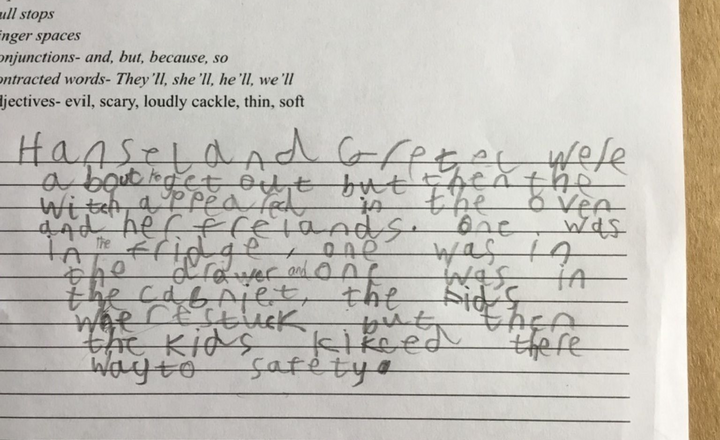 ull stops
inger spaces
onjunctions- and, but, because, so
ontracted words- They'll, she'll, he'll, we'll
djectives- evil, scary, loudly cackle, thin, soft
Hansel and Gretel were
a bout to get out but then the
witch appeared in the oven
and her freiands. one was
in the fridge, one was in
the drawer and one was in
the cabniet, the kids
were stuck but then
the kids kikced there
way to safety.